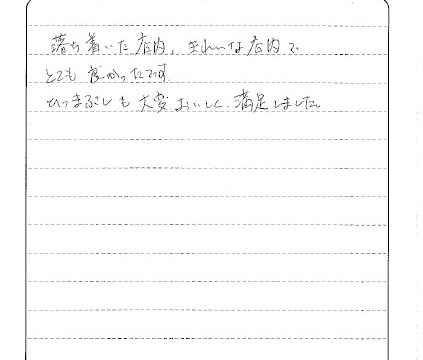 落ち着いた店内、きれいな店内で
とても良かったです
ひつまぶしも大変おいしく、満足しました。